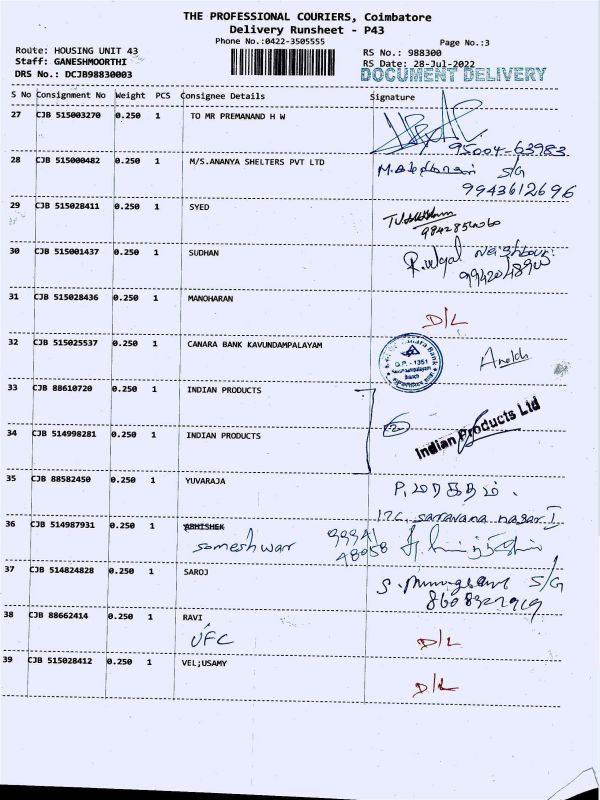 THE PROFESSIONAL COURIERS, Coimbatore
Delivery Runsheet - P43
Phone No.:0422-3505555
Page No.:3
Route: HOUSING UNIT 43
RS No.: 988300
Staff: GANESHMOORTHI
RS Date: 28-Jul-2022
DRS No.: DCJB98830003
DOCUMENT DELIVERY
S No Consignment No Weight PCS Consignee Details Signature
27 CJB 515003270 0.250 1 TO MR PREMANAND H W
95004-63983
28 CJB 515000482 0.250 1 M/S.ANANYA SHELTERS PVT LTD
S/G
9943612696
29 CJB 515028411 0.250 1 SYED
30 CJB 515001437 0.250 1 SUDHAN
Neighbour
31 CJB 515028436 0.250 1 MANOHARAN
D/L
32 CJB 515025537 0.250 1 CANARA BANK KAVUNDAMPALAYAM
Canara Bank
D.P. - 1351
Branch
33 CJB 88610720 0.250 1 INDIAN PRODUCTS
Indian Products Ltd
34 CJB 514998281 0.250 1 INDIAN PRODUCTS
35 CJB 88582450 0.250 1 YUVARAJA
P. மரகதம்.
17C, saravana nagar I
36 CJB 514987931 0.250 1 ABHISHEK
someshwar 99941 48058
37 CJB 514824828 0.250 1 SAROJ
S/G
38 CJB 88662414 0.250 1 RAVI
UFC D/L
39 CJB 515028412 0.250 1 VEL;USAMY
D/L